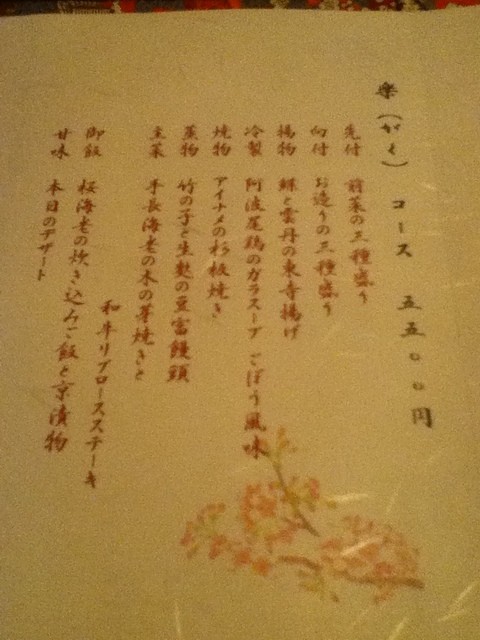 楽(がく) コース 五五〇〇円
先付 前菜の三種盛り
向付 お造りの三種盛り
揚物 鰈と雲丹の東寺揚げ
冷製 阿波尾鶏のガラスープ ごぼう風味
焼物 アイナメの杉板焼き
蒸物 竹の子と生麩の豆富饅頭
主菜 手長海老の木の芽焼きと
和牛リブロースステーキ
御飯 桜海老の炊き込みご飯と京漬物
甘味 本日のデザート